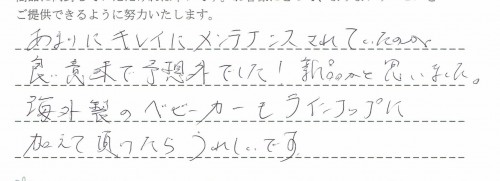 ご提供できるように努力いたします。
あまりにキレイにメンテナンスされていたのが
良い意味で予想外でした！新品かと思いました。
海外製のベビーカーもラインナップに
加えて頂けたらうれしいです